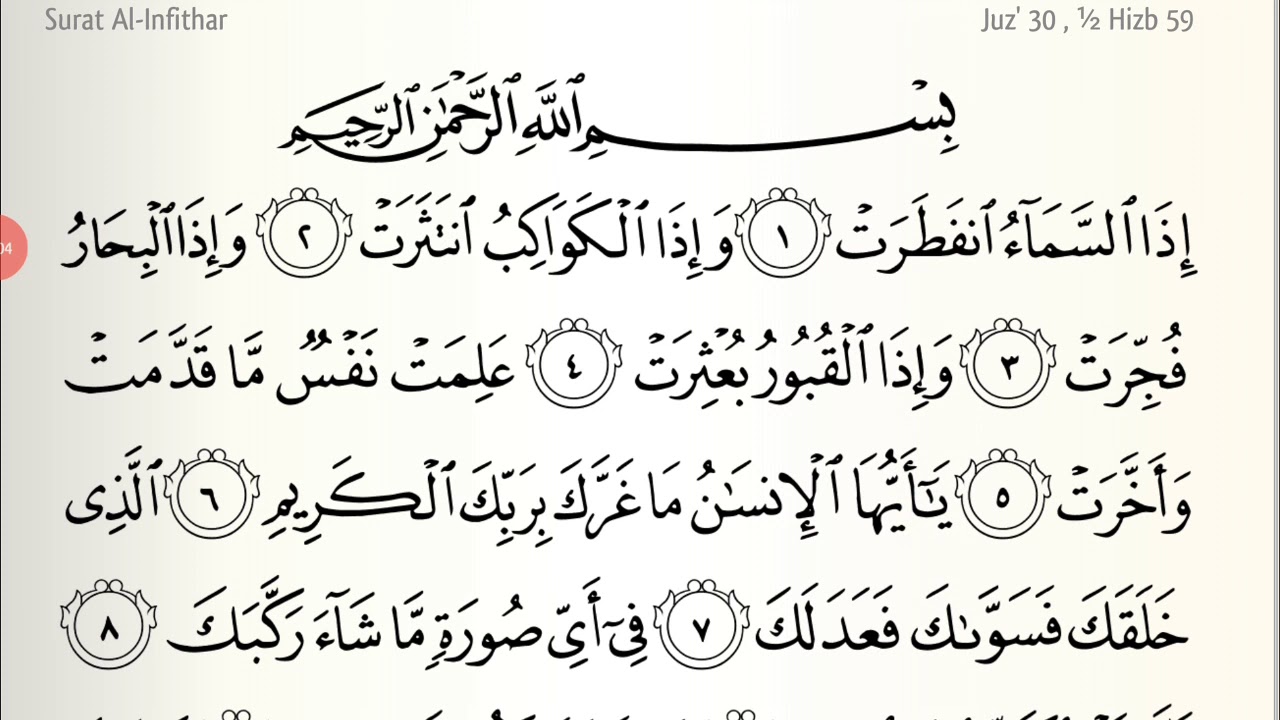 Surat Al-Infithar
Juz' 30 , ½ Hizb 59
بِسْمِ ٱللَّهِ ٱلرَّحْمَٰنِ ٱلرَّحِيمِ
إِذَا ٱلسَّمَآءُ ٱنفَطَرَتْ ١ وَإِذَا ٱلْكَوَاكِبُ ٱنتَثَرَتْ ٢ وَإِذَا ٱلْبِحَارُ
04
فُجِّرَتْ ٣ وَإِذَا ٱلْقُبُورُ بُعْثِرَتْ ٤ عَلِمَتْ نَفْسٌ مَّا قَدَّمَتْ
وَأَخَّرَتْ ٥ يَٰٓأَيُّهَا ٱلْإِنسَٰنُ مَا غَرَّكَ بِرَبِّكَ ٱلْكَرِيمِ ٦ ٱلَّذِى
خَلَقَكَ فَسَوَّىٰكَ فَعَدَلَكَ ٧ فِىٓ أَىِّ صُورَةٍ مَّا شَآءَ رَكَّبَكَ ٨